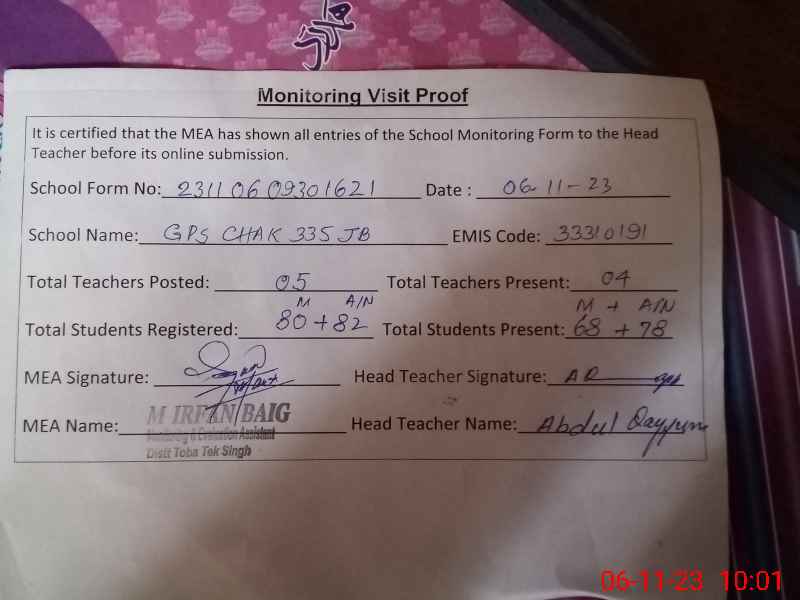 Monitoring Visit Proof
It is certified that the MEA has shown all entries of the School Monitoring Form to the Head
Teacher before its online submission.
School Form No: 2311 06 09301621 Date : 06-11-23
School Name: GPS CHAK 335 JB EMIS Code: 33310191
Total Teachers Posted: 05 Total Teachers Present: 04
M A/N M + A/N
Total Students Registered: 80 + 82 Total Students Present: 68 + 78
MEA Signature: Head Teacher Signature: AQ
MEA Name: M IRFAN BAIG Head Teacher Name: Abdul Qayyum
Monitoring & Evaluation Assistant
Distt Toba Tek Singh
06-11-23 10:01